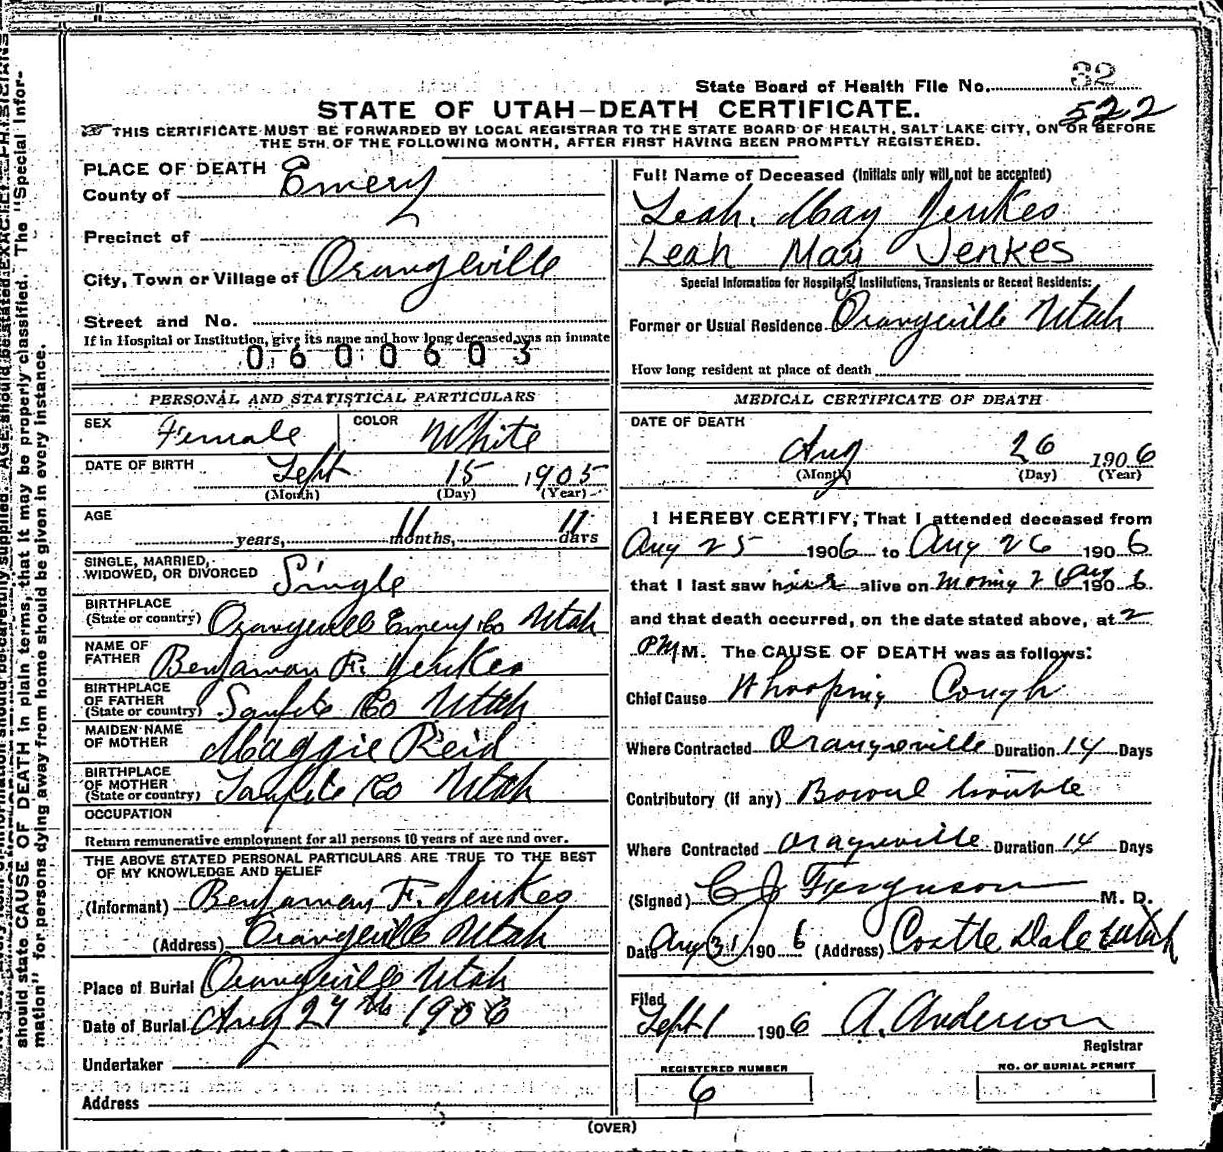 State Board of Health File No. 32
522
STATE OF UTAH—DEATH CERTIFICATE.
THIS CERTIFICATE MUST BE FORWARDED BY LOCAL REGISTRAR TO THE STATE BOARD OF HEALTH, SALT LAKE CITY, ON OR BEFORE
THE 5TH OF THE FOLLOWING MONTH, AFTER FIRST HAVING BEEN PROMPTLY REGISTERED.
PLACE OF DEATH
County of Emery
Precinct of
City, Town or Village of Orangeville
Street and No.
If in Hospital or Institution, give its name and how long deceased was an inmate
0600603
Full Name of Deceased (Initials only will not be accepted)
Leah. May Jenkes
Leah May Jenkes
Special Information for Hospitals, Institutions, Transients or Recent Residents:
Former or Usual Residence Orangeville Utah
How long resident at place of death
PERSONAL AND STATISTICAL PARTICULARS
SEX Female COLOR White
DATE OF BIRTH Sept 15 1905
(Month) (Day) (Year)
AGE
years, 11 months, 11 days
SINGLE, MARRIED,
WIDOWED, OR DIVORCED Single
BIRTHPLACE
(State or country) Orangeville Emery Co Utah
NAME OF
FATHER Benjaman F. Jenkes
BIRTHPLACE
OF FATHER
(State or country) Sanpete Co Utah
MAIDEN NAME
OF MOTHER Maggie Reid
BIRTHPLACE
OF MOTHER
(State or country) Sanpete Co Utah
OCCUPATION
Return remunerative employment for all persons 10 years of age and over.
THE ABOVE STATED PERSONAL PARTICULARS ARE TRUE TO THE BEST
OF MY KNOWLEDGE AND BELIEF
(Informant) Benjaman F. Jenkes
(Address) Orangeville Utah
Place of Burial Orangeville Utah
Date of Burial Aug 27th 1906
Undertaker
Address
MEDICAL CERTIFICATE OF DEATH
DATE OF DEATH
Aug 26 1906
(Month) (Day) (Year)
I HEREBY CERTIFY, That I attended deceased from
Aug 25 1906 to Aug 26 1906
that I last saw her alive on morning 26 Aug 1906
and that death occurred, on the date stated above, at 2
PM M. The CAUSE OF DEATH was as follows:
Chief Cause Whooping Cough
Where Contracted Orangeville Duration 14 Days
Contributory (if any) Bowel trouble
Where Contracted Orangeville Duration 14 Days
(Signed) C J Ferguson M. D.
Date Aug 31 1906 (Address) Castle Dale Utah
Filed
Sept 1 1906 A. Anderson
Registrar
REGISTERED NUMBER
6
NO. OF BURIAL PERMIT
(OVER)
should state CAUSE OF DEATH in plain terms, that it may be properly classified. The "Special Infor-
mation" for persons dying away from home should be given in every instance.